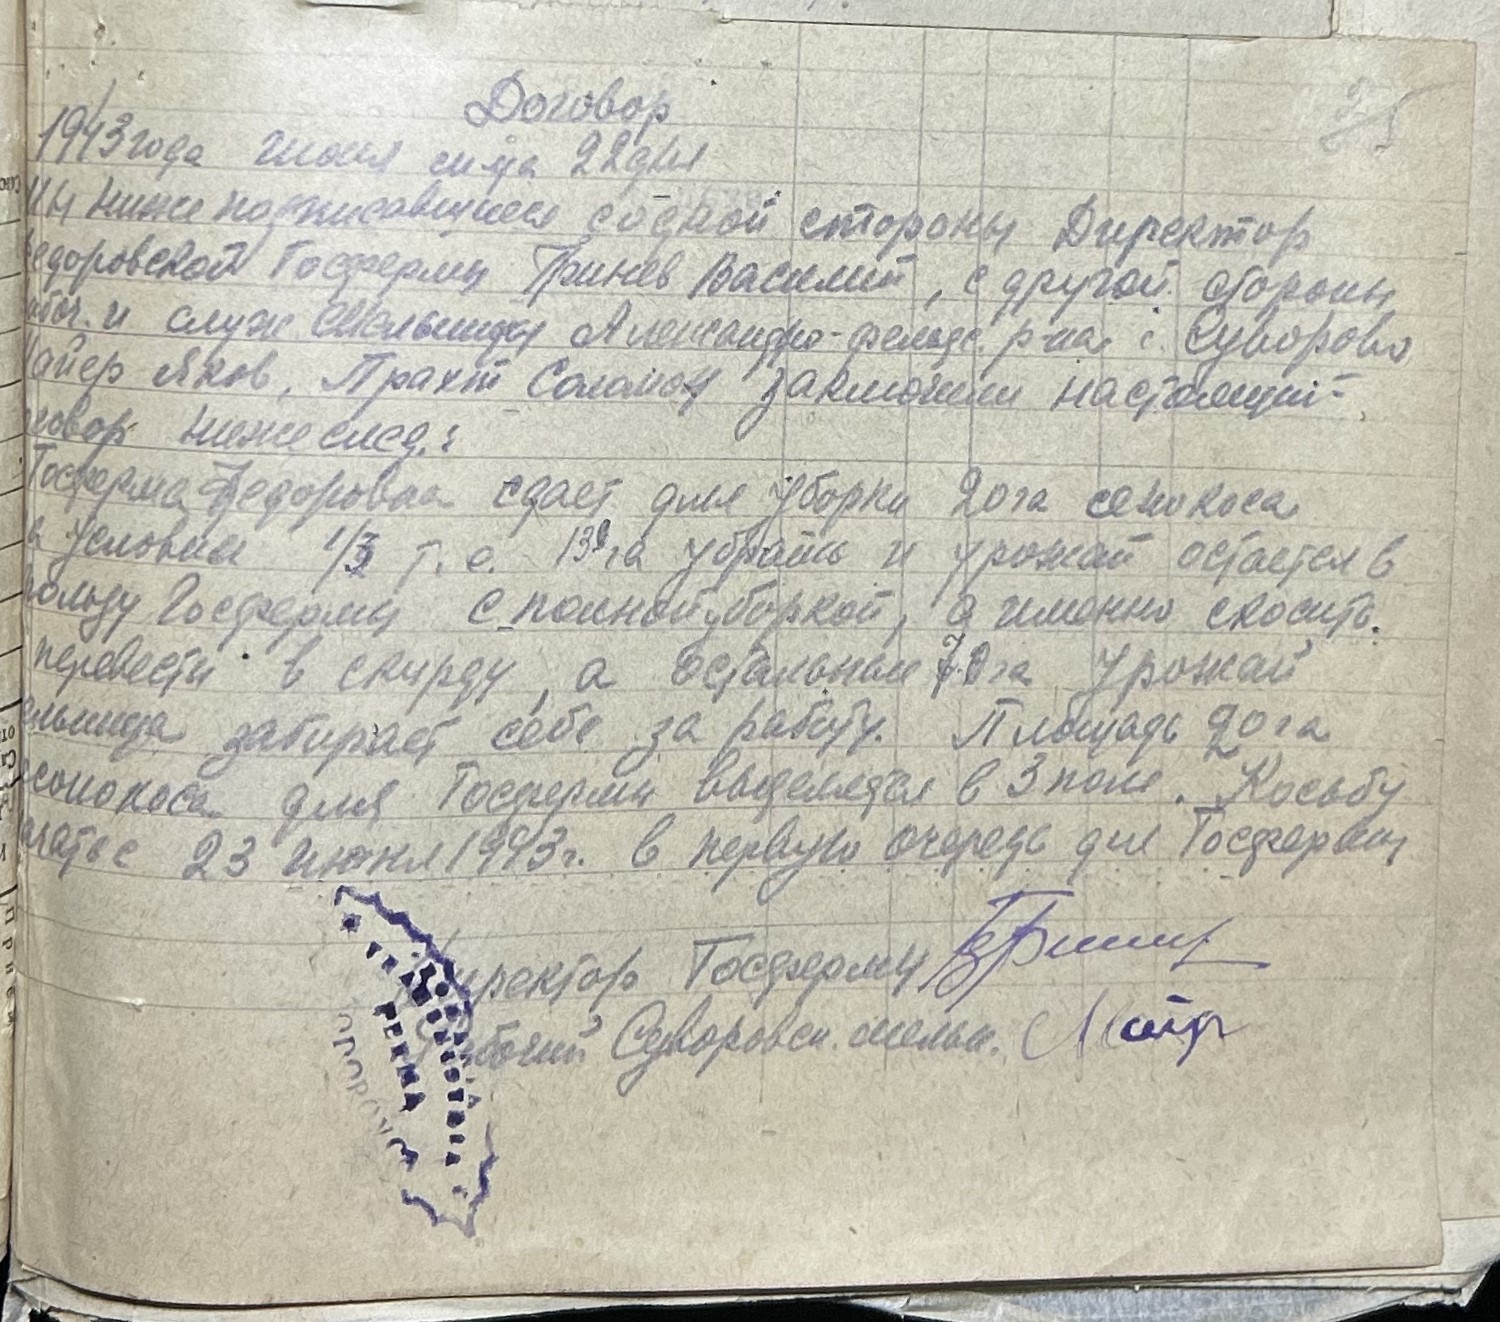 Договор
1943 года июня м-ца 22 дня
Мы нижеподписавшиеся с одной стороны Директор
Федоровской Госфермы Гринев Василий, с другой стороны
рабоч. и служ. мельницы Александро-фельдс. р-на с. Суворово
Майер Яков, Прахт Саломон заключили настоящий
говор нижеслед.:
Госферма Федоровка сдает для уборки 20 га сенокоса
на условии 1/3 т.е. 13 га убрать и урожай остается в
пользу Госфермы с полной уборкой, а именно скосить.
перевести в скирду, а остальные 7.0 га Урожай
ельница забирает себе за работу. Площадь 20 га
сенокоса для Госфермы выделяется в 3 поле. Косьбу
начать с 23 июня 1943 г. в первую очередь для Госфермы
Директор Госфермы
Рабочий Суворовск. мельн. Майер